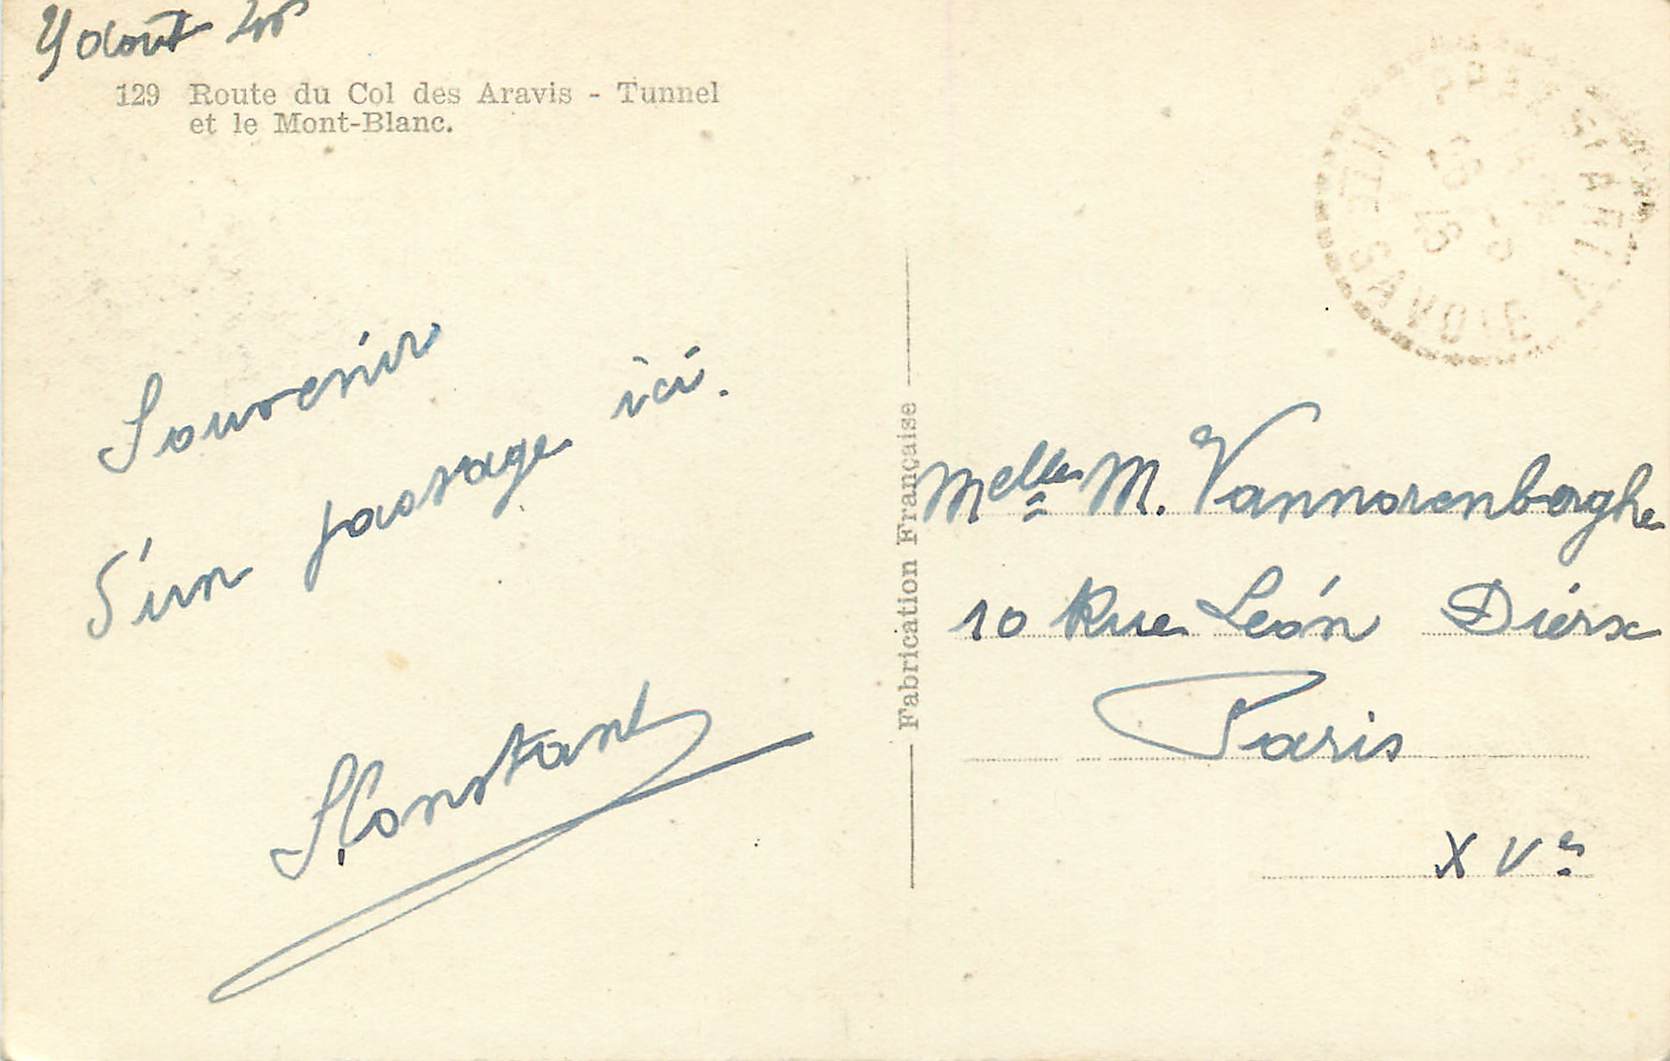 août
129 Route du Col des Aravis - Tunnel
et le Mont-Blanc.
Souvenir
d'un passage ici.
Constant
Fabrication Française
Melle M. Vannorenberghe
10 Rue Léon Dierx
Paris
XVe
HTE SAVOIE